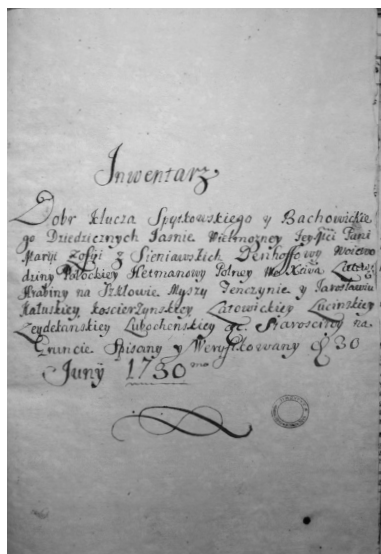 Inwentarz
Dobr klucza Spytkowskiego y Bachowickie
go Dziedzicznych Jasnie Wielmozney Jeymci Pani
Maryi Zofiyi z Sieniawskich Denhoffowy Woiewo
dziny Połockiey Hetmanowy Polney
Hrabiny na Szkłowie Myszy Tenczynie y Jarosławiu
Kałuskiey Koscierzynskiey Latowickiey
Zeydekanskiey &c. Starosciny na
Gruncie Spisany y Weryfikowany 30
Junÿ 1730